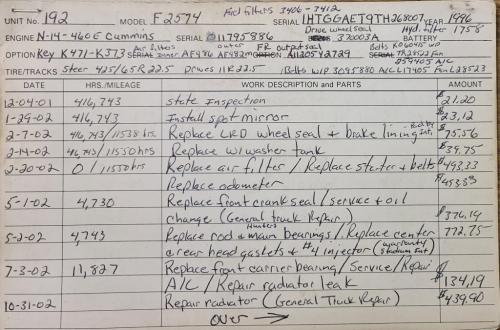 Fuel filters 3406 - 3412
UNIT No. 192 MODEL F2574 SERIAL 1HTGGAET9TH268007 YEAR 1996
Drive wheel seal Hyd. filter
ENGINE N-14-460E Cummins SERIAL 11795886 370003A BATTERY 1758
Air filters outer FR output seal Belts K060415 WP
OPTION Key K471-K373 SERIAL inner AF486 AF482m OPTION A1205Y2729 SERIAL TR28522 Fan
259405 A/C
TIRE/TRACKS Steer 425/65R22.5 Drives 11R22.5 (Belts W/P 3095880 A/C L17405 Fan L28523
DATE HRS./MILEAGE WORK DESCRIPTION and PARTS AMOUNT
12-04-01 416,743 state Inspection $21.20
1-29-02 416,743 Install spot mirror $23.12
2-7-02 416,743/11538 hrs. Replace LRD wheel seal & brake lining Int. $75.56
2-14-02 416,743/11550 hrs Replace W/washer tank $39.75
2-20-02 0/11550hrs Replace air filter/Replace starter & belts $493.33
Replace odometer $453.33
5-1-02 4,730 Replace front crank seal/service & oil
change (General truck Repair) $376.14
5-2-02 4,743 Replace rod & main bearings/Replace center 772.75
& rear head gaskets & #4 injector (warranty Stadium Int)
7-3-02 11,827 Replace front carrier bearing/Service/Repair
A/C / Repair radiator leak $134.19
10-31-02 Repair radiator (General Truck Repair) $439.90
OVER →